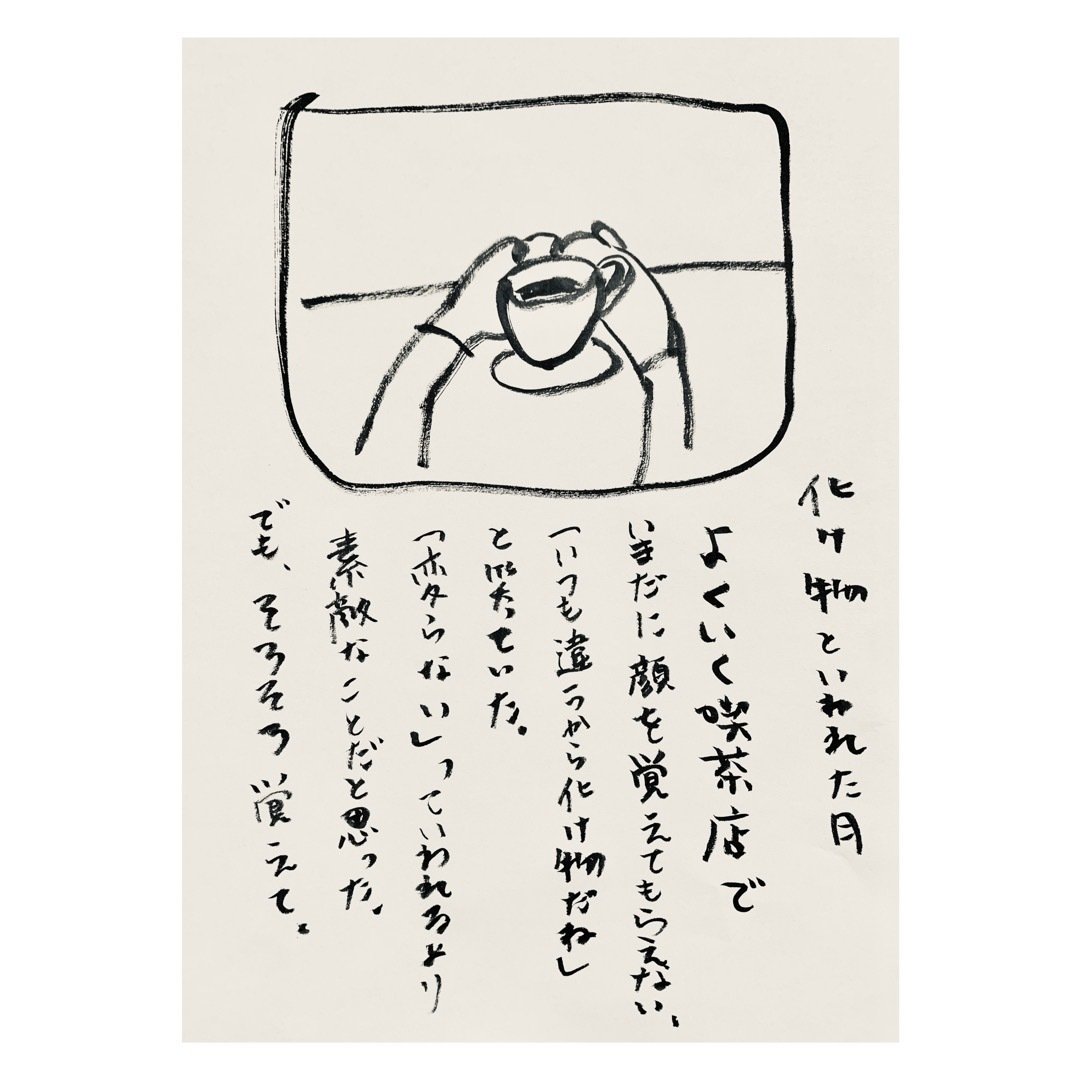 化け物といわれた日
よくいく喫茶店で
いまだに顔を覚えてもらえない。
「いつも違うから化け物だね」
と笑っていた。
「変らない」っていわれるより
素敵なことだと思った。
でも、そろそろ覚えて。